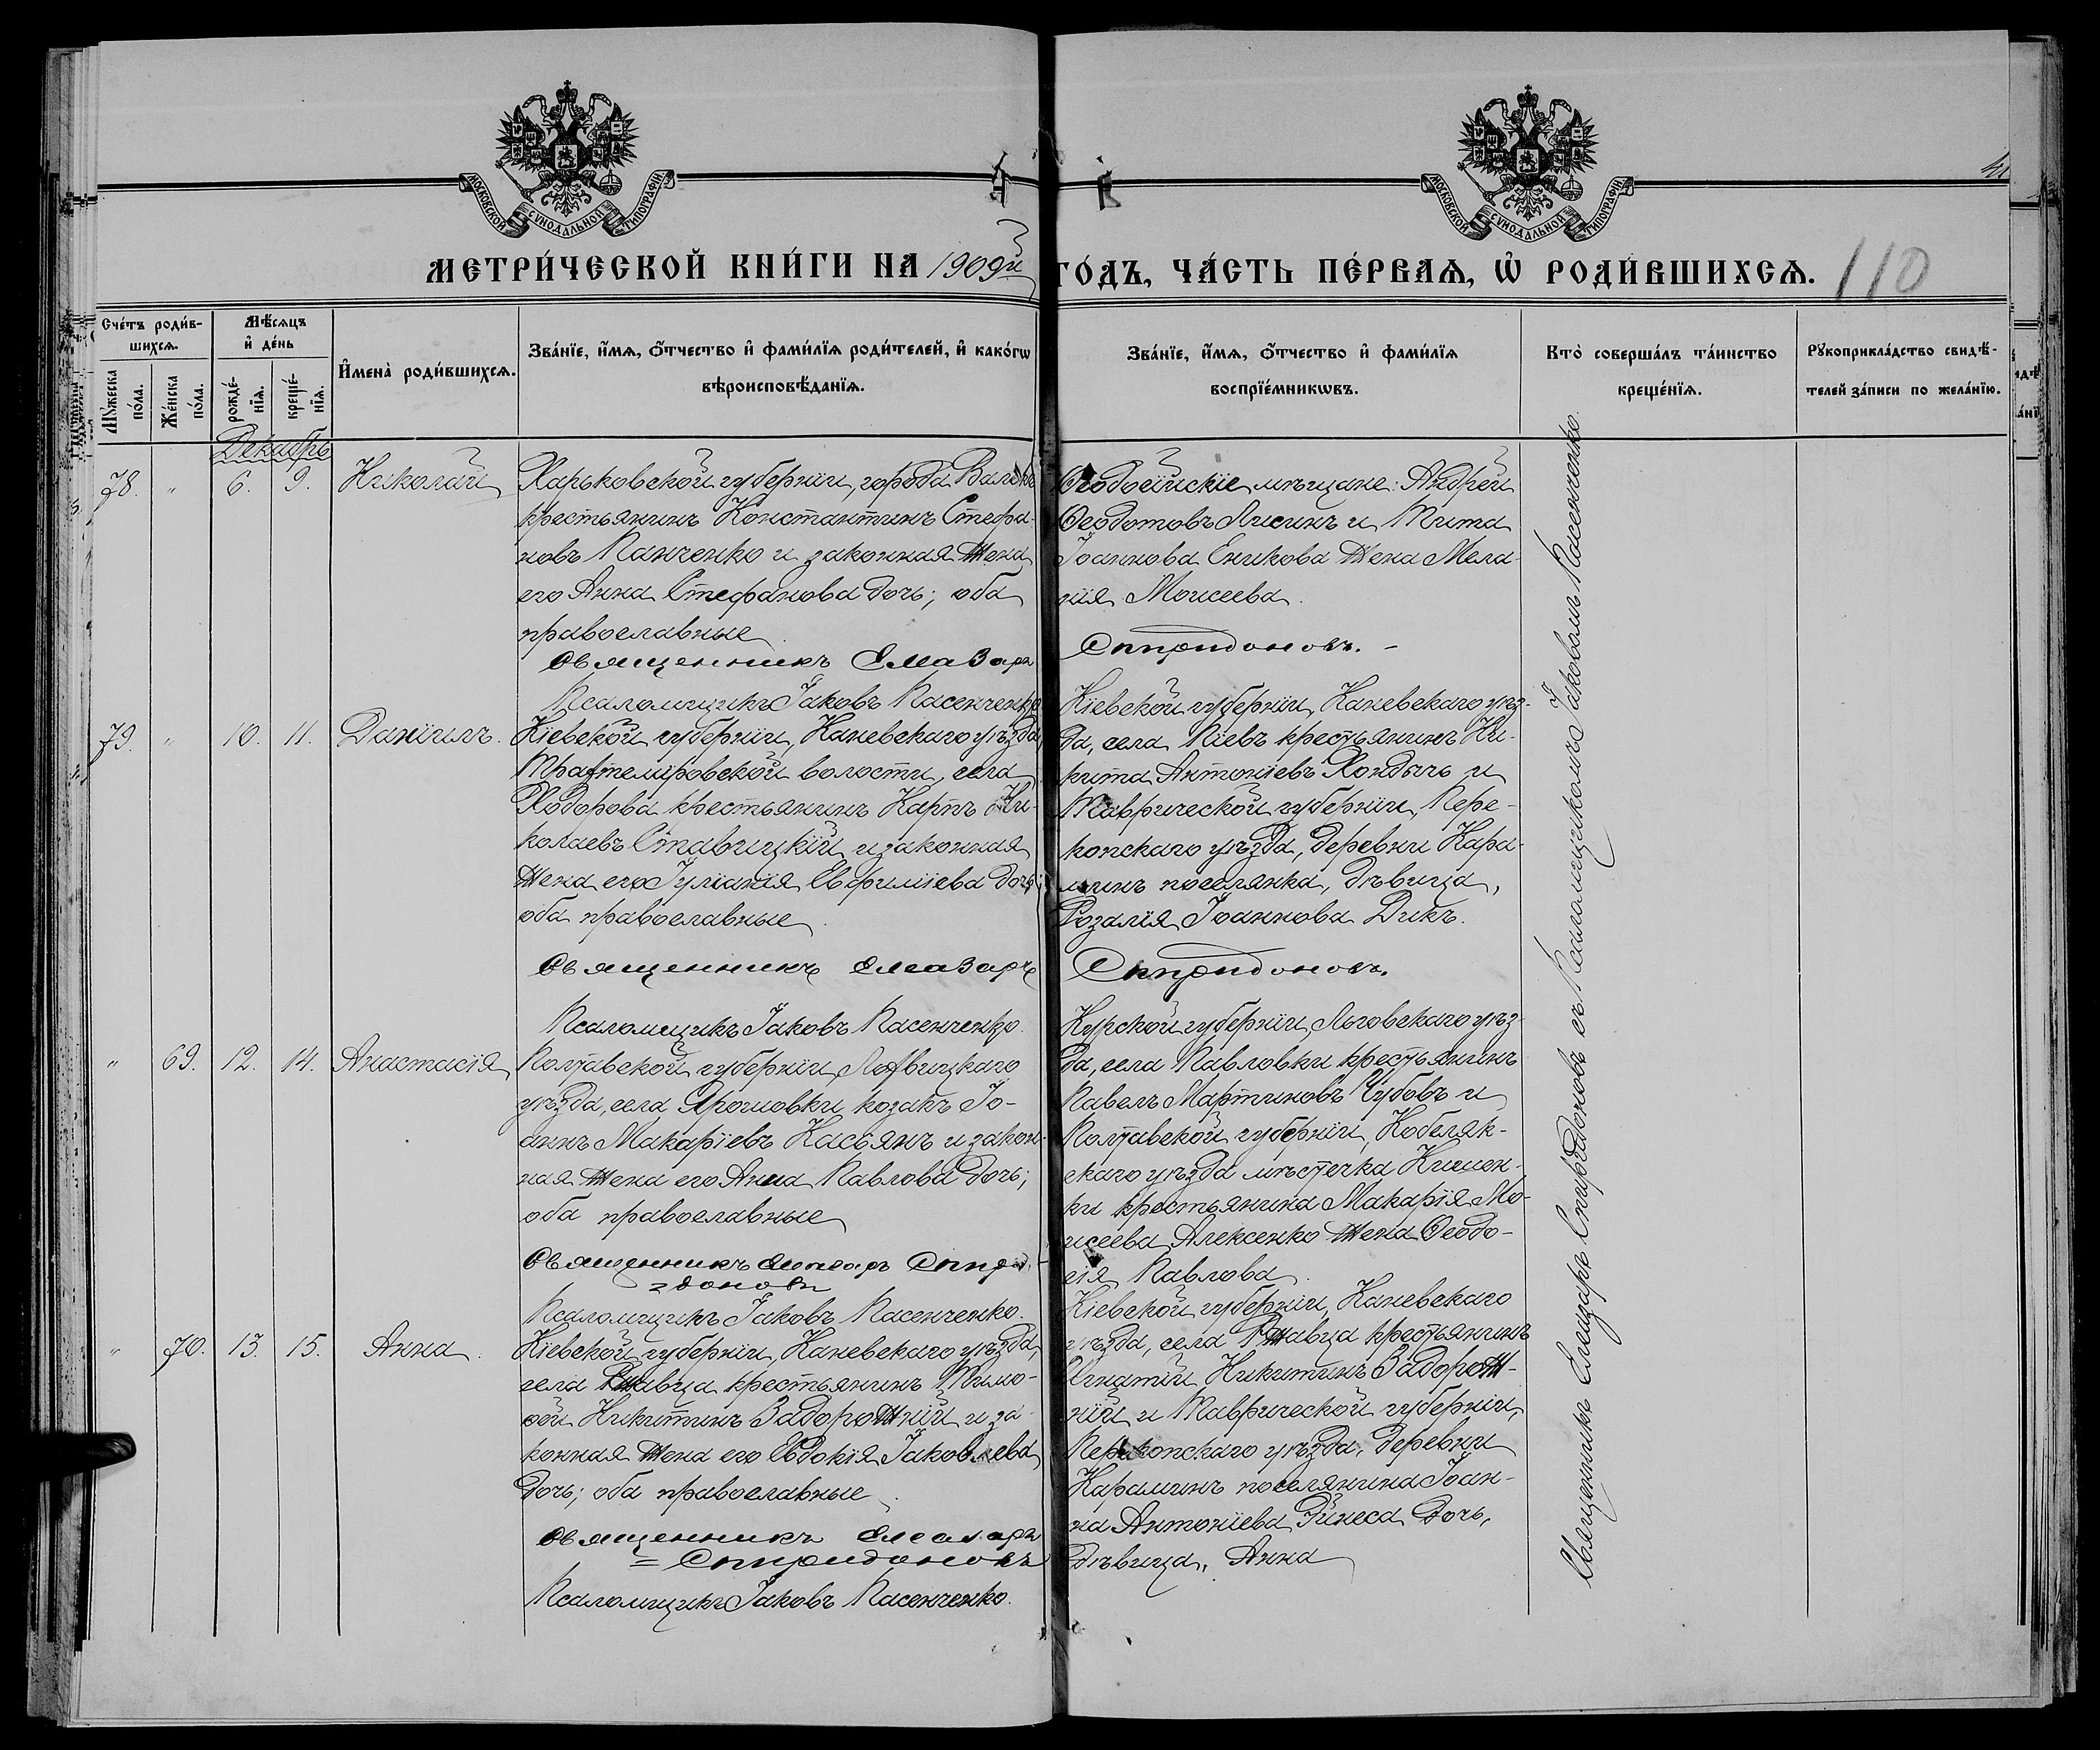 МОСКОВСКОЙ СѴНОДАЛЬНОЙ ТИПОГРАФІИ
МОСКОВСКОЙ СѴНОДАЛЬНОЙ ТИПОГРАФІИ
МЕТРИ́ЧЕСКОЙ КНИ́ГИ НА 1909й ГО́ДЪ, ЧА́СТЬ ПЕ́РВАѦ, Ѡ҆ РОДИ́ВШИХСѦ. 110
Сче́тъ роди́в-
шихсѧ.
Мꙋ́жеска
по́ла.
Же́нска
по́ла.
Мѣ́сѧцъ
и҆ де́нь
рожде́-
нїѧ.
креще́-
нїѧ.
И҆мена̀ роди́вшихсѧ.
Зва́нїе, и҆́мѧ, ѻ҆́тчество и҆ фами́лїѧ роди́телей, и҆ како́гѡ
вѣроисповѣ́данїѧ.
Зва́нїе, и҆́мѧ, ѻ҆́тчество и҆ фами́лїѧ
воспрїе́мникѡвъ.
Кто̀ соверша́лъ та́инство
креще́нїѧ.
Рꙋкоприкла́дство свидѣ́-
телей за́писи по жела́нїю.
Декабрь
78. " 6. 9. Николай
Харьковской губерніи, города
крестьянинъ Константинъ Стефа-
новъ Панченко и законная жена
его Анна Стефанова дочь; оба
православные
Священникъ Елеазаръ
Псаломщикъ Іаковъ Пасенченко
Ѳеодосійскіе мѣщане: Андрей
Ѳеодотовъ Лисинъ и Тита
Іоаннова Еникова жена Мела-
нія Моисеева.
Спиридоновъ. -
79. " 10. 11. Даніилъ.
Кіевской губерніи, Каневскаго уѣзда,
Трахтемировской волости, села
Ходорова крестьянинъ Карпъ Ни-
колаевъ Ставицкій и законная
жена его Іуліанія Евѳиміева дочь;
оба православные.
Священникъ Елеазаръ
Псаломщикъ Іаковъ Пасенченко.
Кіевской губерніи, Каневскаго уѣз-
да, села Піевъ крестьянинъ Ни-
кита Антоніевъ Хондычъ и
Таврической губерніи, Пере-
копскаго уѣзда, деревни Кара-
минъ поселянка, дѣвица,
Розалія Іоаннова Дикъ.
Спиридоновъ.
" 69. 12. 14. Анастасія
Полтавской губерніи, Лохвицкаго
уѣзда, села Ярошовки козакъ Іо-
аннъ Макаріевъ Касьянъ и закон-
ная жена его Анна Павлова дочь;
оба православные
Священникъ Елеазаръ Спири-
доновъ
Псаломщикъ Іаковъ Пасенченко.
Курской губерніи, Льговскаго уѣз-
да, села Павловки крестьянинъ
Павелъ Мартиновъ Чубовъ и
Полтавской губерніи, Кобеляк-
скаго уѣзда мѣстечка Кишен-
ки крестьянина Макарія Мо-
исеева Алексенко жена Ѳеодо-
сія Павлова.
" 70. 13. 15. Анна.
Кіевской губерніи, Каневскаго уѣзда,
села Ржавца крестьянинъ Тимо-
ѳей Никитинъ Задорожній и за-
конная жена его Евдокія Іаковлева
дочь; оба православные.
Священникъ Елеазаръ
= Спиридоновъ
Псаломщикъ Іаковъ Пасенченко.
Кіевской губерніи, Каневскаго
уѣзда, села Ржавца крестьянинъ
Игнатій Никитинъ Задорож-
ній и Таврической губерніи,
Перекопскаго уѣзда, деревни
Караминъ поселянина Іоан-
на Антоніева дочь,
дѣвица, Анна
Священникъ Елеазаръ Спиридоновъ съ Псаломщикомъ Іаковомъ Пасенченко.